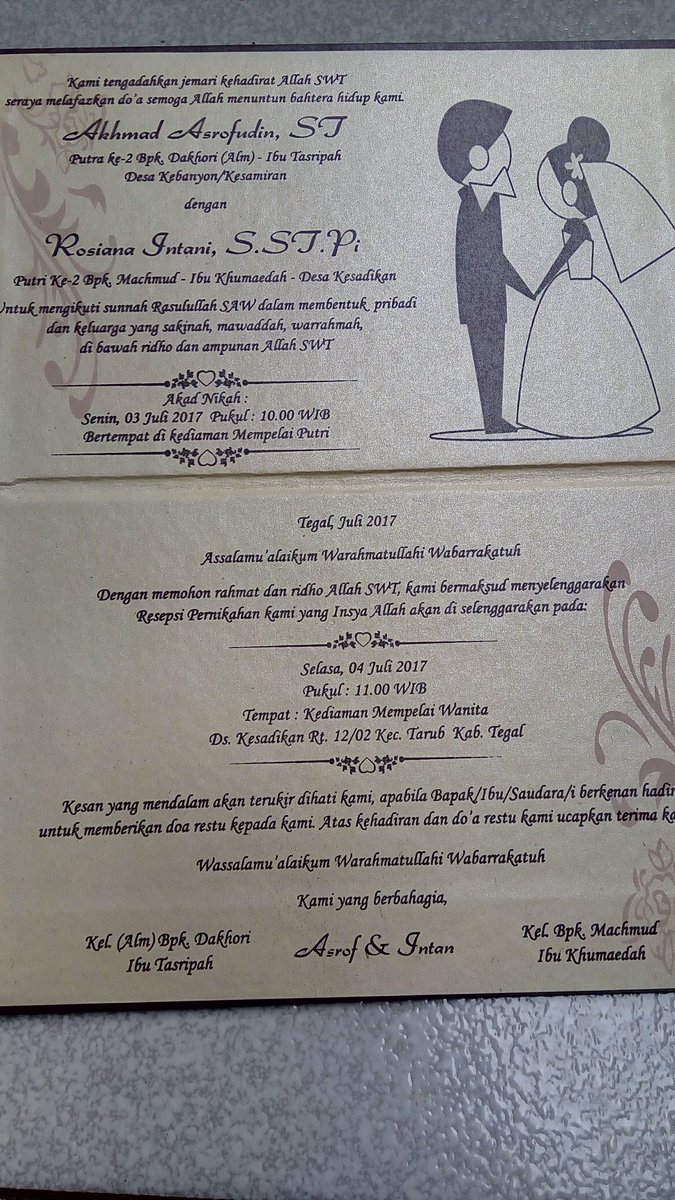 Kami tengadahkan jemari kehadirat Allah SWT
seraya melafazkan do'a semoga Allah menuntun bahtera hidup kami.
Akhmad Asrofudin, ST
Putra ke-2 Bpk. Dakhori (Alm) - Ibu Tasripah
Desa Kebanyon/Kesamiran
dengan
Rosiana Intani, S.ST.Pi
Putri Ke-2 Bpk. Machmud - Ibu Khumaedah - Desa Kesadikan
Untuk mengikuti sunnah Rasulullah SAW dalam membentuk pribadi
dan keluarga yang sakinah, mawaddah, warrahmah,
di bawah ridho dan ampunan Allah SWT
Akad Nikah :
Senin, 03 Juli 2017 Pukul : 10.00 WIB
Bertempat di kediaman Mempelai Putri
Tegal, Juli 2017
Assalamu'alaikum Warahmatullahi Wabarrakatuh
Dengan memohon rahmat dan ridho Allah SWT, kami bermaksud menyelenggarakan
Resepsi Pernikahan kami yang Insya Allah akan di selenggarakan pada:
Selasa, 04 Juli 2017
Pukul : 11.00 WIB
Tempat : Kediaman Mempelai Wanita
Ds. Kesadikan Rt. 12/02 Kec. Tarub Kab. Tegal
Kesan yang mendalam akan terukir dihati kami, apabila Bapak/Ibu/Saudara/i berkenan hadir
untuk memberikan doa restu kepada kami. Atas kehadiran dan do'a restu kami ucapkan terima ka
Wassalamu'alaikum Warahmatullahi Wabarrakatuh
Kami yang berbahagia,
Kel. (Alm) Bpk. Dakhori
Ibu Tasripah
Asrof & Intan
Kel. Bpk. Machmud
Ibu Khumaedah